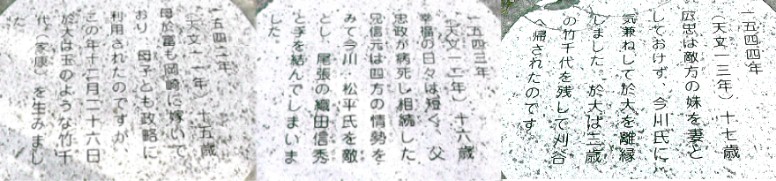 一五四二年
（天文一一年）　十五歳
母於富も岡崎に嫁いで
おり　母子とも政略に
利用されたのですが
この年十二月二十六日
於大は玉のような竹千
代（家康）を生みまし
た
一五四三年
（天文一二年）　十六歳
幸福の日々は短く、父
忠政が病死し相続した
兄信元は四方の情勢を
みて今川・松平氏を敵
とし　尾張の織田信秀
と手を結んでしまいま
した
一五四四年
（天文一三年）　十七歳
広忠は敵方の妹を妻と
しておけず、今川氏に
気兼ねして於大を離縁
しました　於大は三歳
の竹千代を残して刈谷
へ帰されたのです